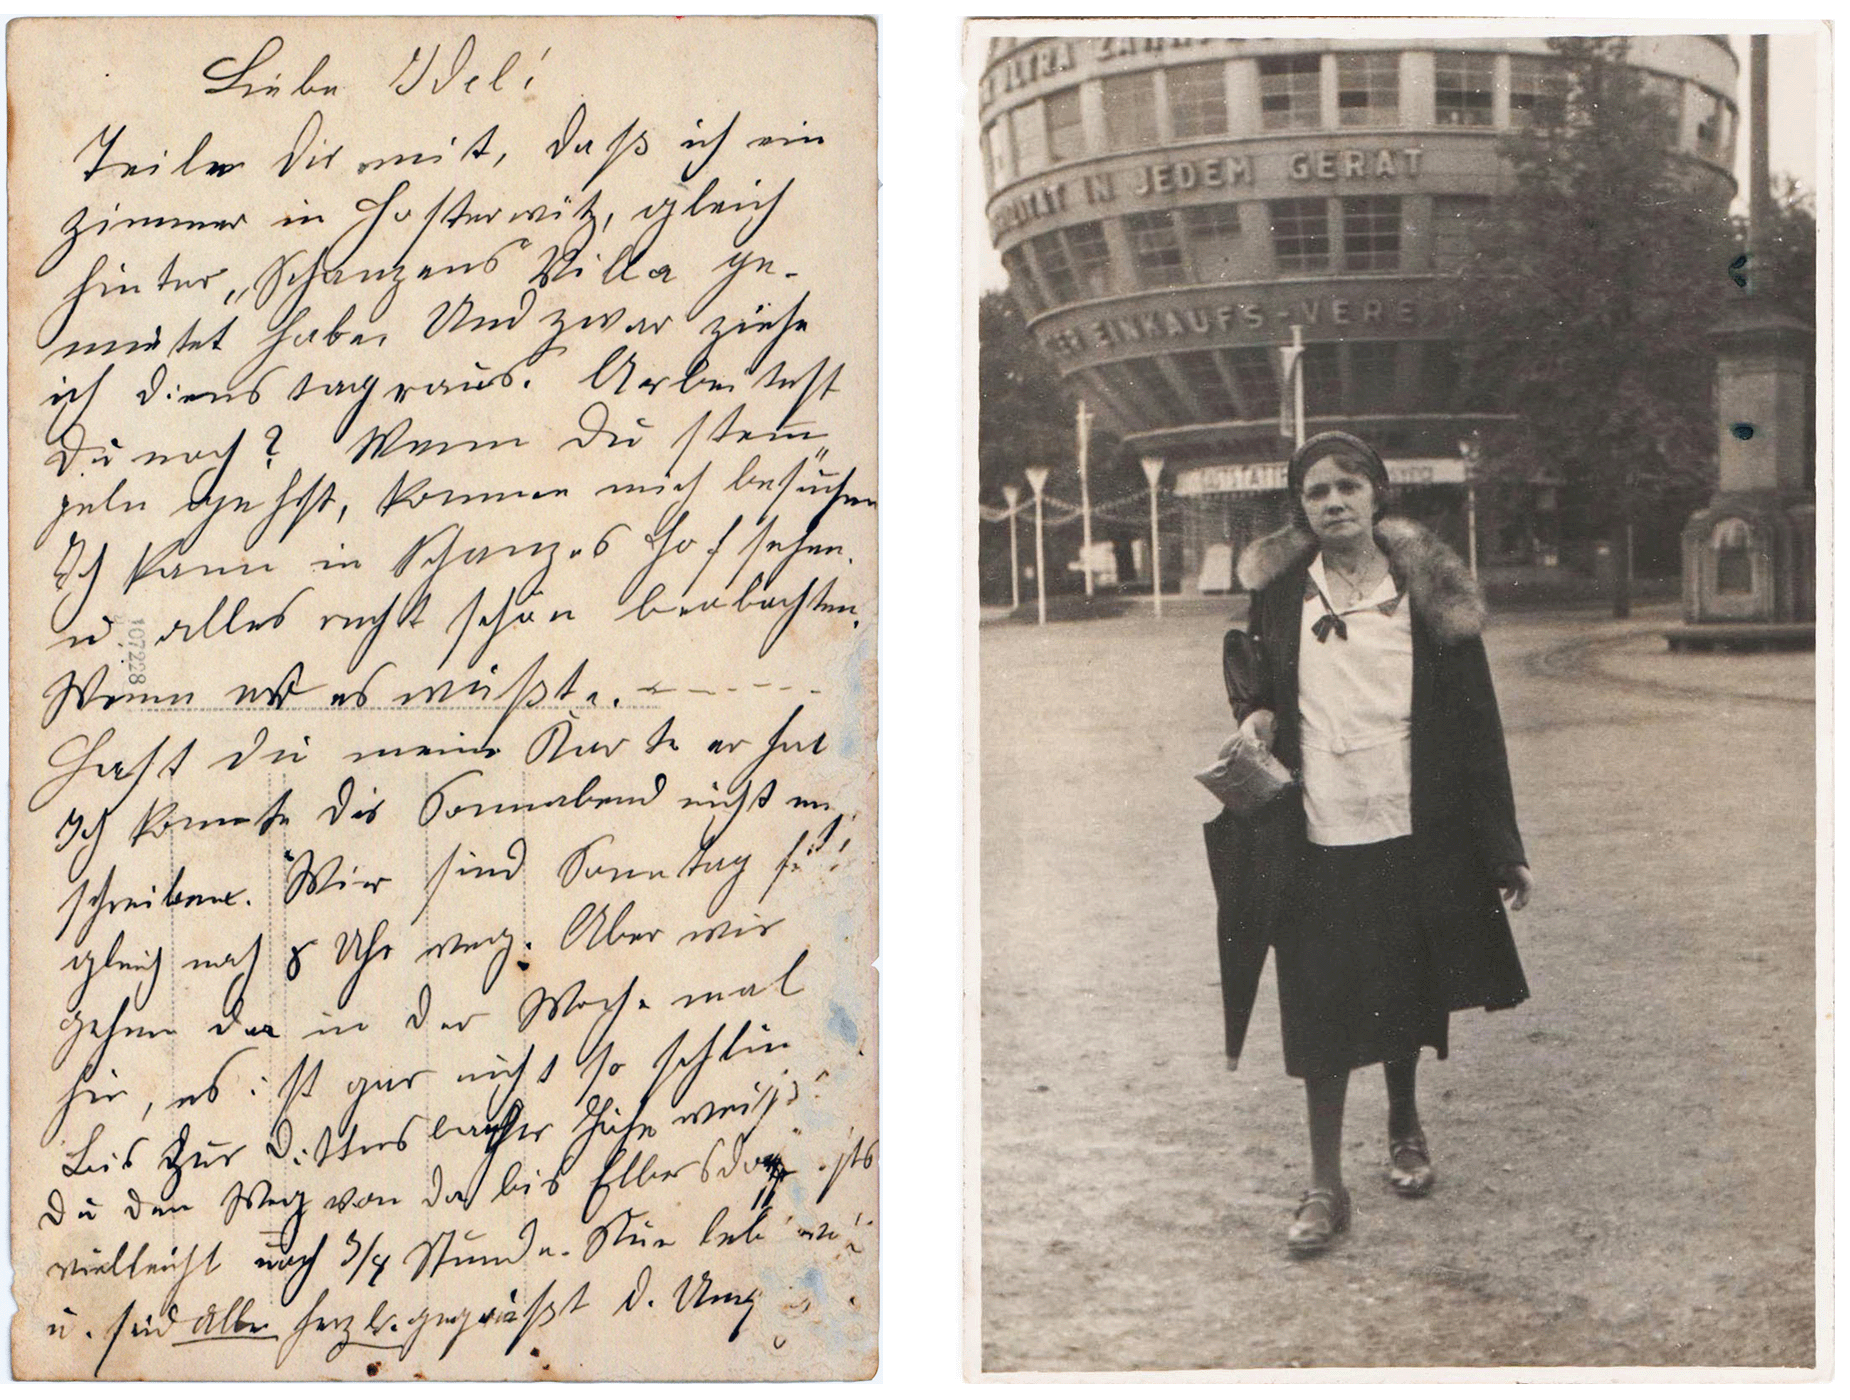 Liebe Idel!
Teile Dir mit, daß ich ein
Zimmer in Hosterwitz, gleich
hinter „Schanzens Villa ge-
mietet habe. Und zwar ziehe
ich Dienstag raus. Arbeitest
Du noch? Wenn Du stem„
peln gehst, komme mich besuchen
Ich kann in Schanzes Hof sehen.
u. alles recht schön beobachten.
Wenn er es wüßte. - - - - -
107228
Hast Du meine Karte erhal
Ich konnte Dir Sonnabend nicht
schreiben. Wir sind Sonntag
gleich nach 8 Uhr weg. Aber wir
gehen da in der Woche mal
hin, es ist gar nicht so schlim
Bis zur Dittersbacher Höhe weißt
Du den Weg von da bis Elbersdorf ists
vielleicht noch 3/4 Stunde. Nun leb
u. seid alle herzl. gegrüßt d.
ZITÄT IN JEDEM GERÄT
EINKAUFS-VERE